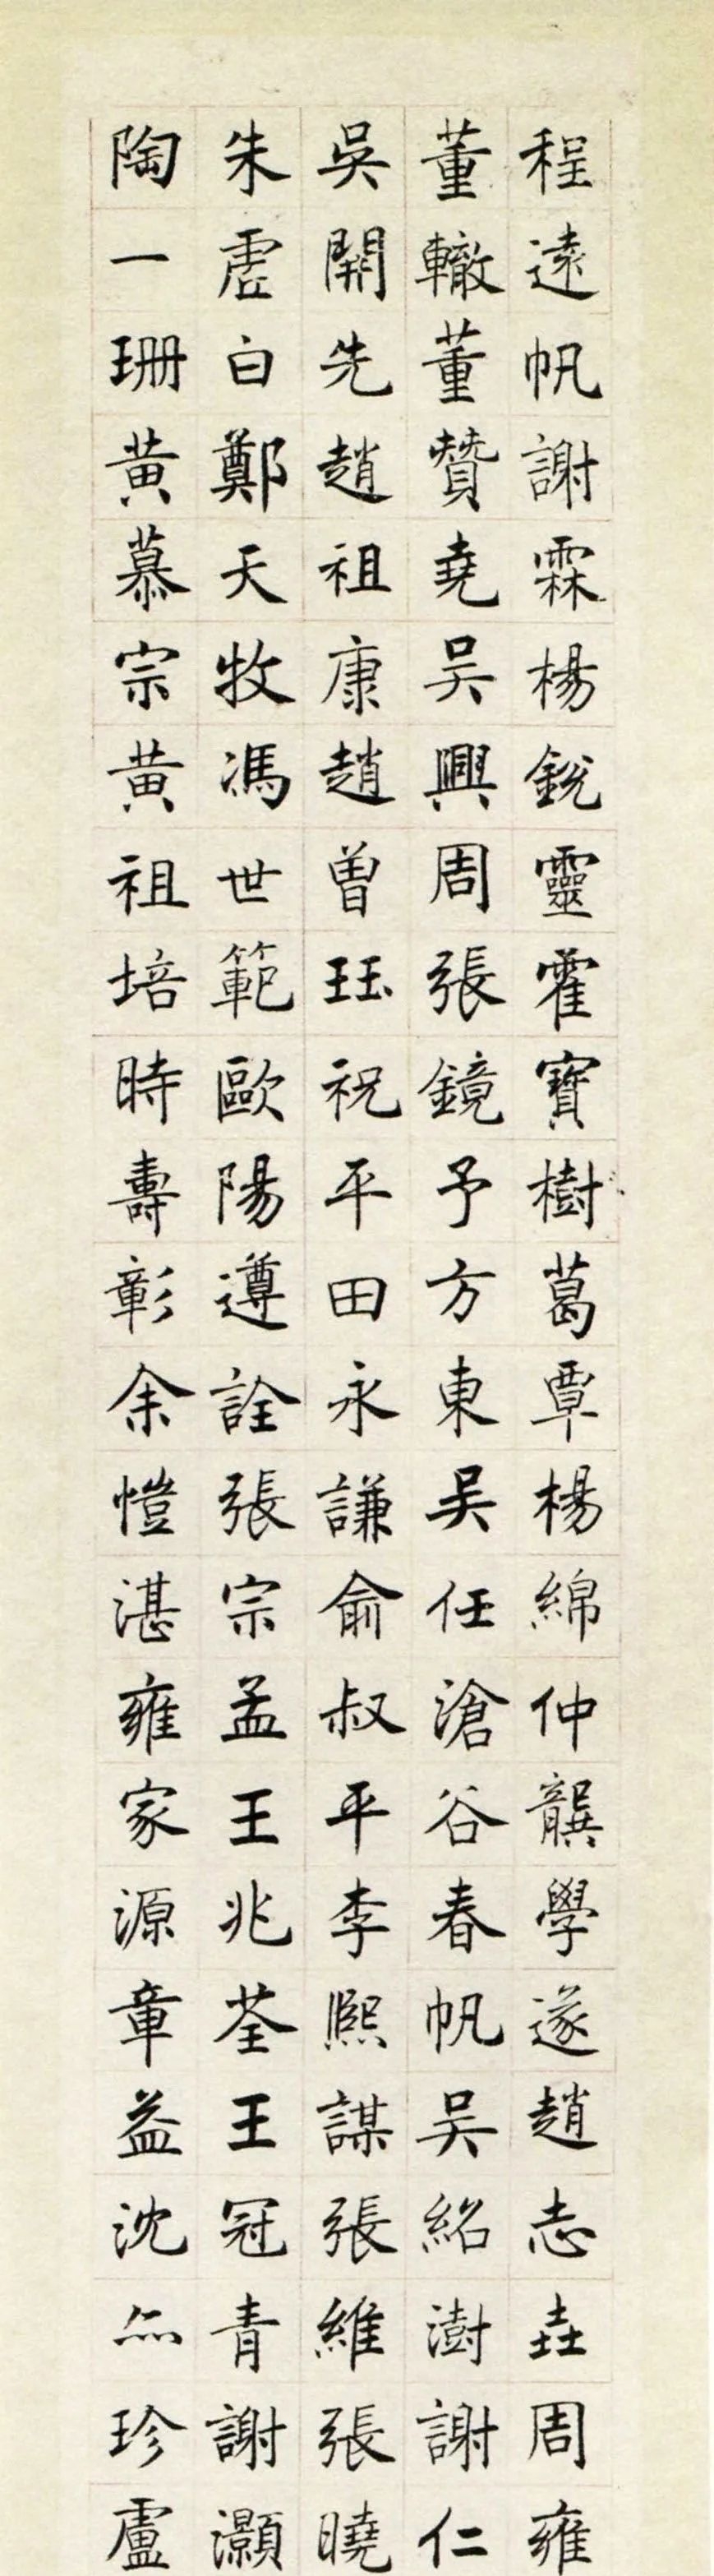 程遠帆謝霖楊銳靈霍寶樹葛覃楊綿仲龔學遂趙志垚周雍
董轍董贊堯吳興周張鏡予方東吳任滄谷春帆吳紹澍謝仁
吳開先趙祖康趙曾珏祝平田永謙俞叔平李熙謀張維張曉
朱虛白鄭天牧馮世範歐陽遵詮張宗孟王兆荃王冠青謝灝
陶一珊黃慕宗黃祖培時壽彰余愷湛雍家源章益沈珍盧